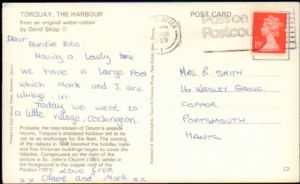 TORQUAY, THE HARBOUR
from an original water colour
by David Skipp ©
POST CARD
Dear
Auntie Rita
Having a Lovely time
we have a Large Pool
which Mark and I are
always in.
Today we went to
a little Village, Cockington.
Probably the best known of Devon's seaside
resorts, Torquay's sheltered harbour led to its
use as an anchorage for the Fleet. The coming
of the railway in 1848 boosted the holiday trade
and fine Victorian buildings began to cover the
hillsides. Conspicuous on the right of the
picture is St. John's Church (1861) whilst in
the foreground is the copper roof of the
Pavilion (1911)
Love from
xx Claire and Mark xx
Pass on
Postcode
19
MRS R. SMITH
16 WESLEY GROVE
COPNOR
PORTSMOUTH
HANTS